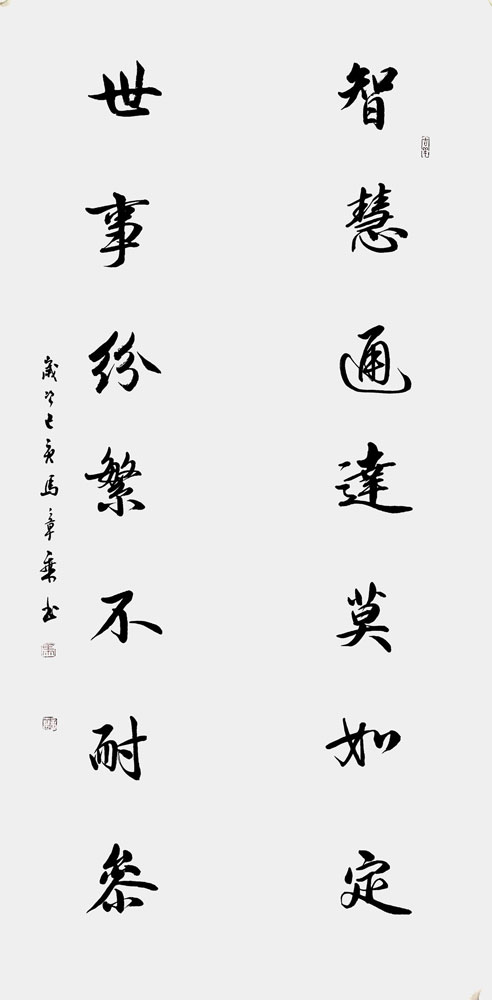 智慧通達莫如定
世事紛繁不耐參
歲次己亥馬章乘書